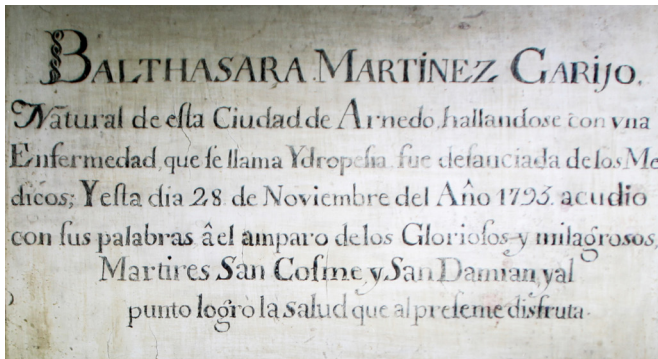 BALTHASARA MARTÍNEZ GARIJO.
Natural de eſta Ciudad de Arnedo, hallandose con vna
Enfermedad, que ſe llama Ydropeſia. fue deſauciada de los Me
dicos; Y eſta dia 28. de Noviembre del Año 1793. acudio
con ſus palabras â el amparo de los Glorioſos y milagrosos,
Martires San Coſme, y San Damian, y al
punto logro la salud que al preſeme disfruta.